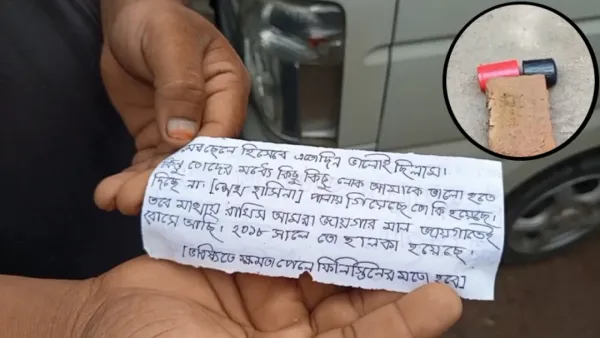 ছেলে হিসেবে এতদিন ভালোই ছিলাম।
কিন্তু তোদের মধ্যে কিছু কিছু লোক আমাকে ভালো হতে
দিচ্ছে না। [শেখ হাসিনা] পালায় গিয়েছে তো কি হয়েছে।
তবে মাথায় রাখিস আমরা জায়গার মাল জায়গাতেই
বসে আছি। ২০১৮ সালে তো হালকা হয়েছে।
[ভবিষ্যতে ক্ষমতা পেলে ফিলিস্তিনের মতো হবে]